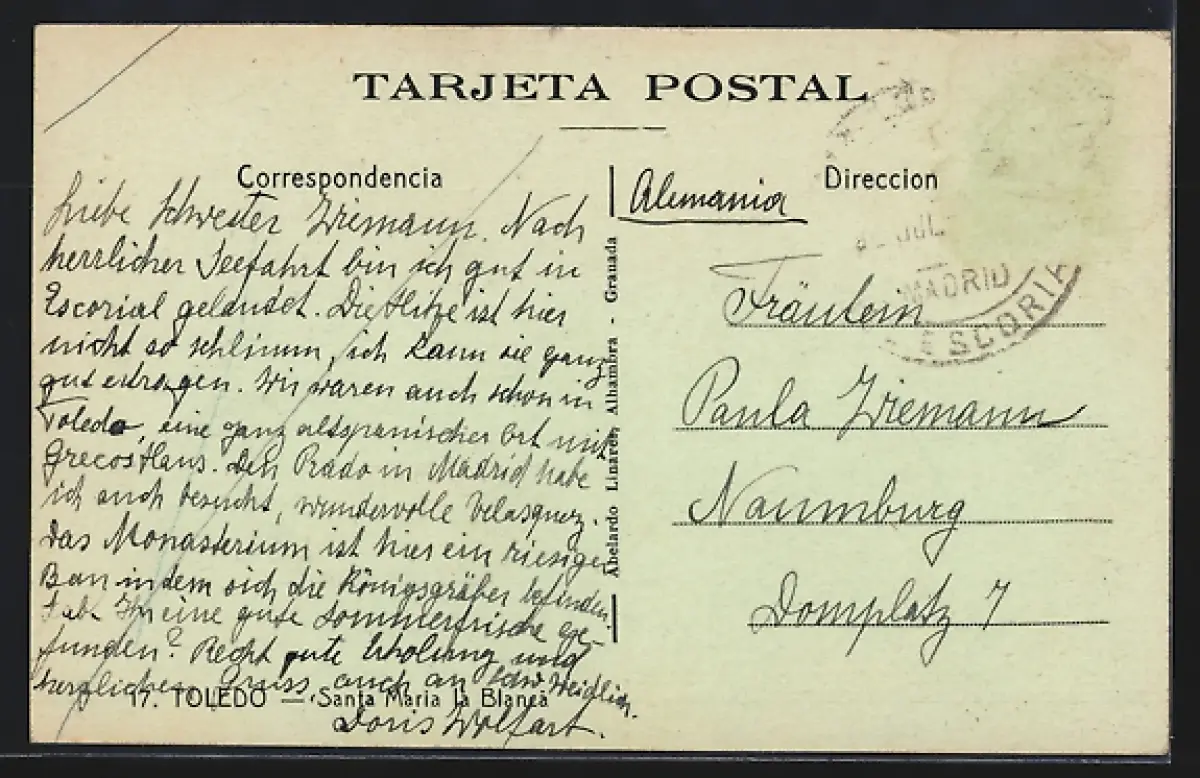 TARJETA POSTAL
Correspondencia
Liebe Schwester Wiemann. Nach
herrlicher Seefahrt bin ich gut in
Escorial gelandet. Die Hitze ist hier
nicht so schlimm, ich kann sie ganz
gut ertragen. Wir waren auch schon in
Toledo, eine ganz altspanischer Ort mit
Grecos Haus. Den Prado in Madrid habe
ich auch besucht, wundervolle Velasquez.
Das Monasterium ist hier ein riesiger
Bau in dem sich die Königsgräber befinden.
Hab. Ihr eine gute Sommerfrische ge-
funden? Recht gute Erholung und
herzlichen Gruss, auch an Schw. Weidlich.
Doris Wolfart.
17. TOLEDO — Santa Maria la Blanca
Abelardo Linares, Alhambra - Granada
Alemania
Direccion
JUL
MADRID
ESCORIA
Fräulein
Paula Wiemann
Naumburg
Domplatz 7